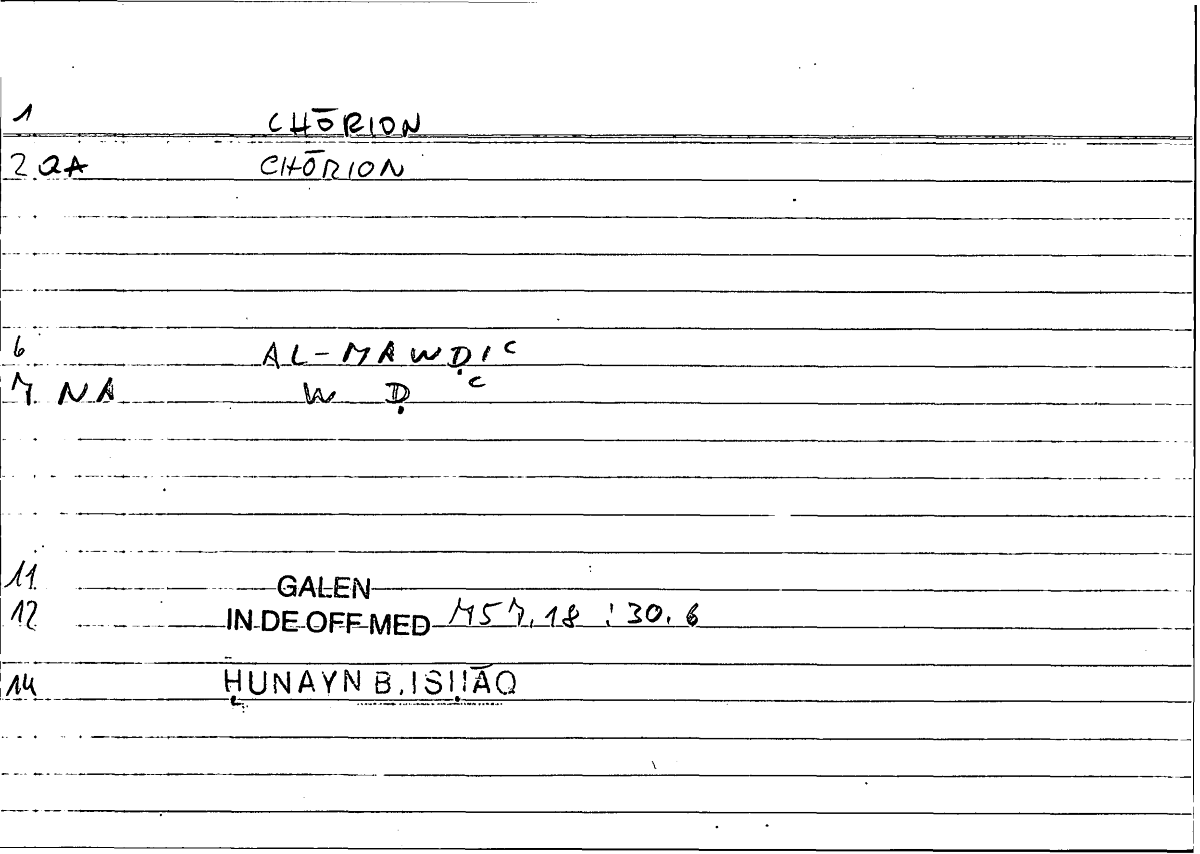 1 CHŌRION
2 QA CHŌRION
6 AL-MAWḌIC
7 NA W Ḍ C
11 GALEN
12 IN DE OFF MED 757,18 : 30.6
14 ḤUNAYN B. ISḤĀQ